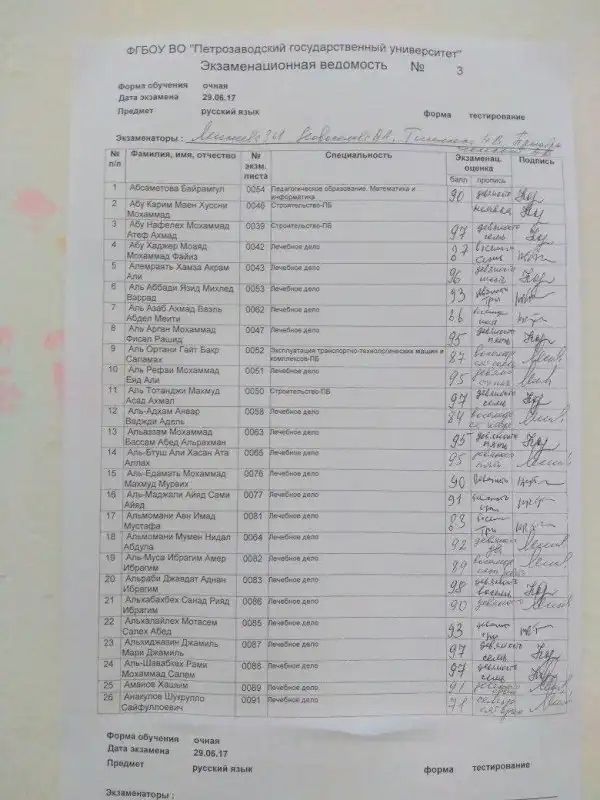 ФГБОУ ВО "Петрозаводский государственный университет"
Экзаменационная ведомость № 3
Форма обучения очная
Дата экзамена 29.06.17
Предмет русский язык форма тестирование
Экзаменаторы :
№ п/п Фамилия, имя, отчество № экзм. листа Специальность Экзаменац. оценка Подпись
балл пропись
1 Абсаметова Байрамгул 0054 Педагогическое образование. Математика и информатика 90 девяносто
2 Абу Карим Маен Хуссни Мохаммад 0046 Строительство-ПБ неявка
3 Абу Нафелех Мохаммад Атеф Ахмад 0039 Строительство-ПБ 97 девяносто семь
4 Абу Хаджер Моаяд Мохаммад Файиз 0042 Лечебное дело 87
5 Алемраять Хамза Акрам Али 0043 Лечебное дело 96 девяносто шесть
6 Аль Аббади Язид Михлед Варрад 0053 Лечебное дело 93 три
7 Аль Азаб Ахмад Ваэль Абдел Меити 0062 Лечебное дело 86
8 Аль Арган Мохаммад Фисал Рашид 0047 Лечебное дело 95 девяносто пять
9 Аль Ортани Гайт Бакр Саламах 0052 Эксплуатация транспортно-технологических машин и комплексов-ПБ 87
10 Аль Рефаи Мохаммад Еид Али 0051 Лечебное дело 95
11 Аль Тотанджи Махмуд Асад Ахмал 0050 Строительство-ПБ 97 девяносто семь
12 Аль-Адхам Анвар Ваджди Адель 0058 Лечебное дело 84
13 Альаззам Мохаммад Бассам Абед Альрахман 0063 Лечебное дело 95 девяносто пять
14 Аль-Бтуш Али Хасан Ата Аллах 0065 Лечебное дело 95
15 Аль-Едамать Мохаммад Махмуд Мурвих 0076 Лечебное дело 90
16 Аль-Маджали Айяд Сами Айяд 0077 Лечебное дело 91
17 Альмомани Авн Имад Мустафа 0081 Лечебное дело 83 три
18 Альмомани Мумен Нидал Абдула 0064 Лечебное дело 92
19 Аль-Муса Ибрагим Амер Ибрагим 0082 Лечебное дело 89
20 Альраби Джавдат Аднан Ибрагим 0083 Лечебное дело 98 девяносто восемь
21 Альхабахбех Санад Рияд Ибрагим 0086 Лечебное дело 90 девяносто
22 Альхалайлех Мотасем Салех Абед 0085 Лечебное дело 93 три
23 Альхиджазин Джамиль Мари Джамиль 0087 Лечебное дело 97 девяносто семь
24 Аль-Шавабкех Рами Мохаммад Салем 0088 Лечебное дело 97 девяносто семь
25 Аманов Хашым 0089 Лечебное дело 91
26 Анакулов Шухрулло Сайфуллоевич 0091 Лечебное дело 71
Форма обучения очная
Дата экзамена 29.06.17
Предмет русский язык форма тестирование
Экзаменаторы :